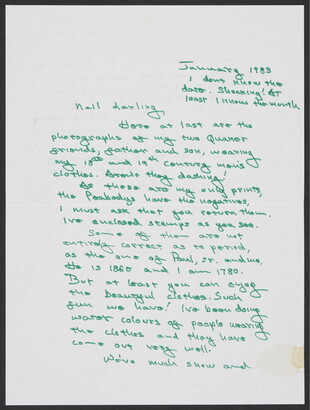 January 1983
I don't know the
date. Shocking! At
least I know the month
Nell darling,
Here at last are the
photographs of my two Quaker
friends, father and son, wearing
my 18th and 19th century men's
clothes. Aren't they dashing!
As these are my only prints,
the Peabodys have the negatives,
I must ask that you return them.
I've enclosed stamps as you see.
Some of them are not
entirely correct as to period,
as the one of Paul, Sr. and me.
He is 1860 and I am 1780.
But at least you can enjoy
the beautiful clothes. Such
fun we have! I've been doing
water colours of people wearing
the clothes and they have
come out very well.
We've much snow and